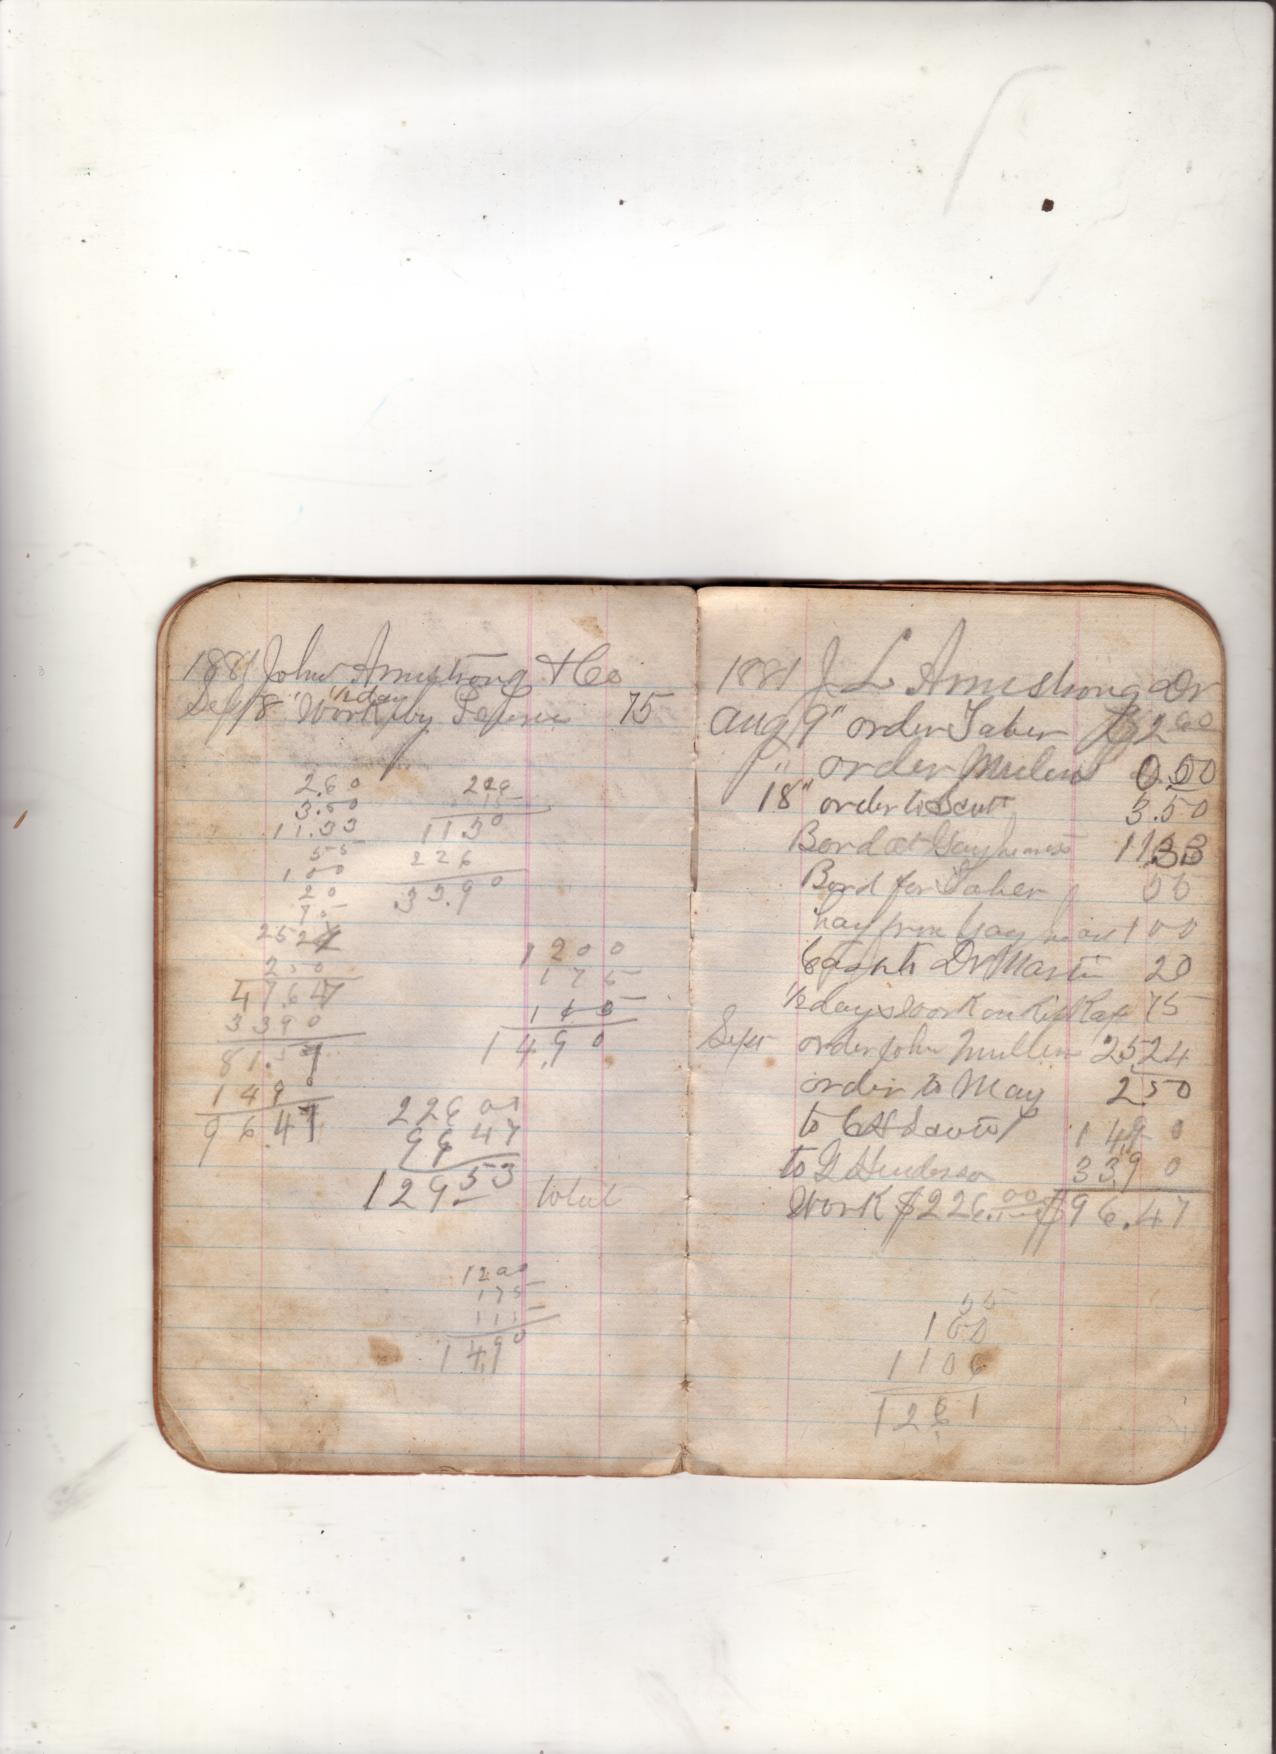 1881 John Armstrong & Co
Sept 8" Work 1/2 day by 75
2.60
3.50
11.33
55
1 00
20
75
25 24
2 50
47 67
33 90
81.57
14 90
96.47
226
15
1130
226
33.90
1200
175
115
14.90
226 00
96 47
129 53 total
1200
175
115
14.90
1881 J L Armstrong Dr
Aug 9" order Taber $2 60
" order Mullen 0.50
18" order to Scott 3.50
Bord at 11.33
Bord for Taber 55
hay from 1 00
to Dr Martin 20
1/2 days work on Rip Rap 75
Sept order John Mullen 25.24
order to May 2.50
to C H 14.90
to G Henderson 33.90
Work $226.00 $96.47
55
100
1106
1261